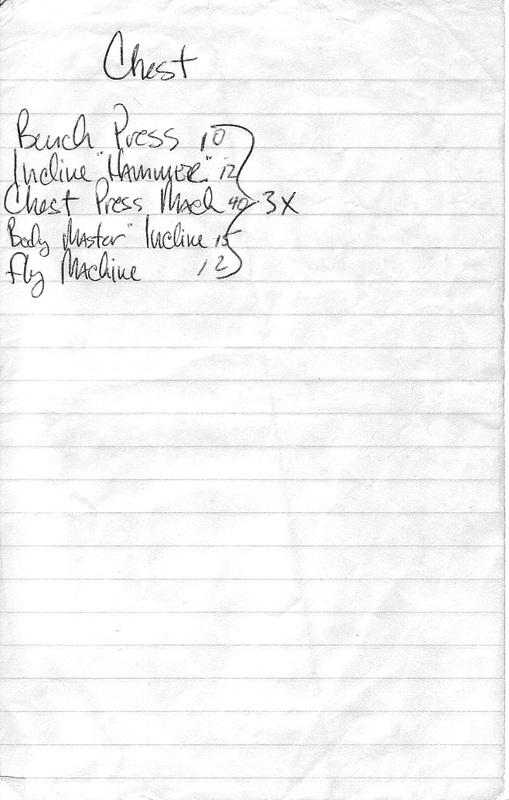 Chest
Bench Press 10
Incline "HAMMER" 12
Chest Press Mach 40 3X
Body Master" Incline 15
Fly Machine 12